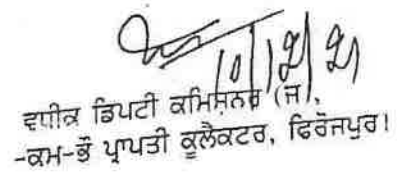 10/12/21
ਵਧੀਕ ਡਿਪਟੀ ਕਮਿਸ਼ਨਰ (ਜ),
-ਕਮ-ਭੌਂ ਪ੍ਰਾਪਤੀ ਕੂਲੈਕਟਰ, ਫਿਰੋਜਪੁਰ।